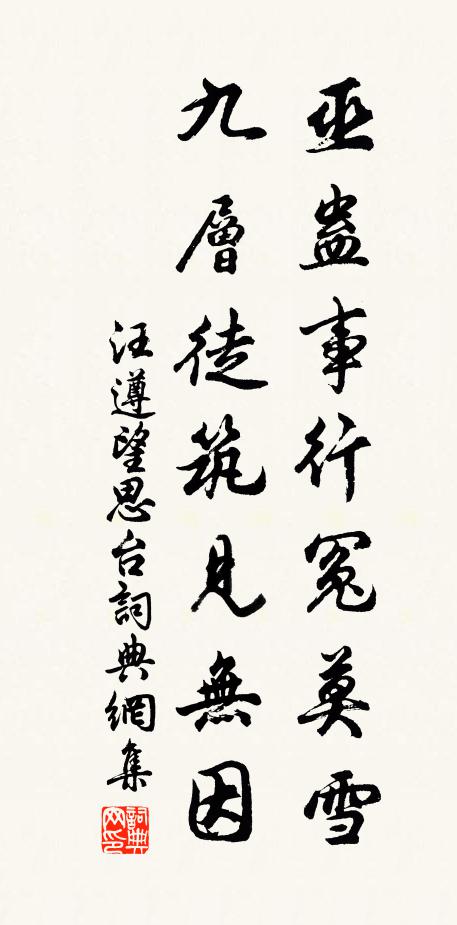 巫蠱事行冤莫雪
九層徒筑見無因
汪遵望思台詞典網集
詞典网印